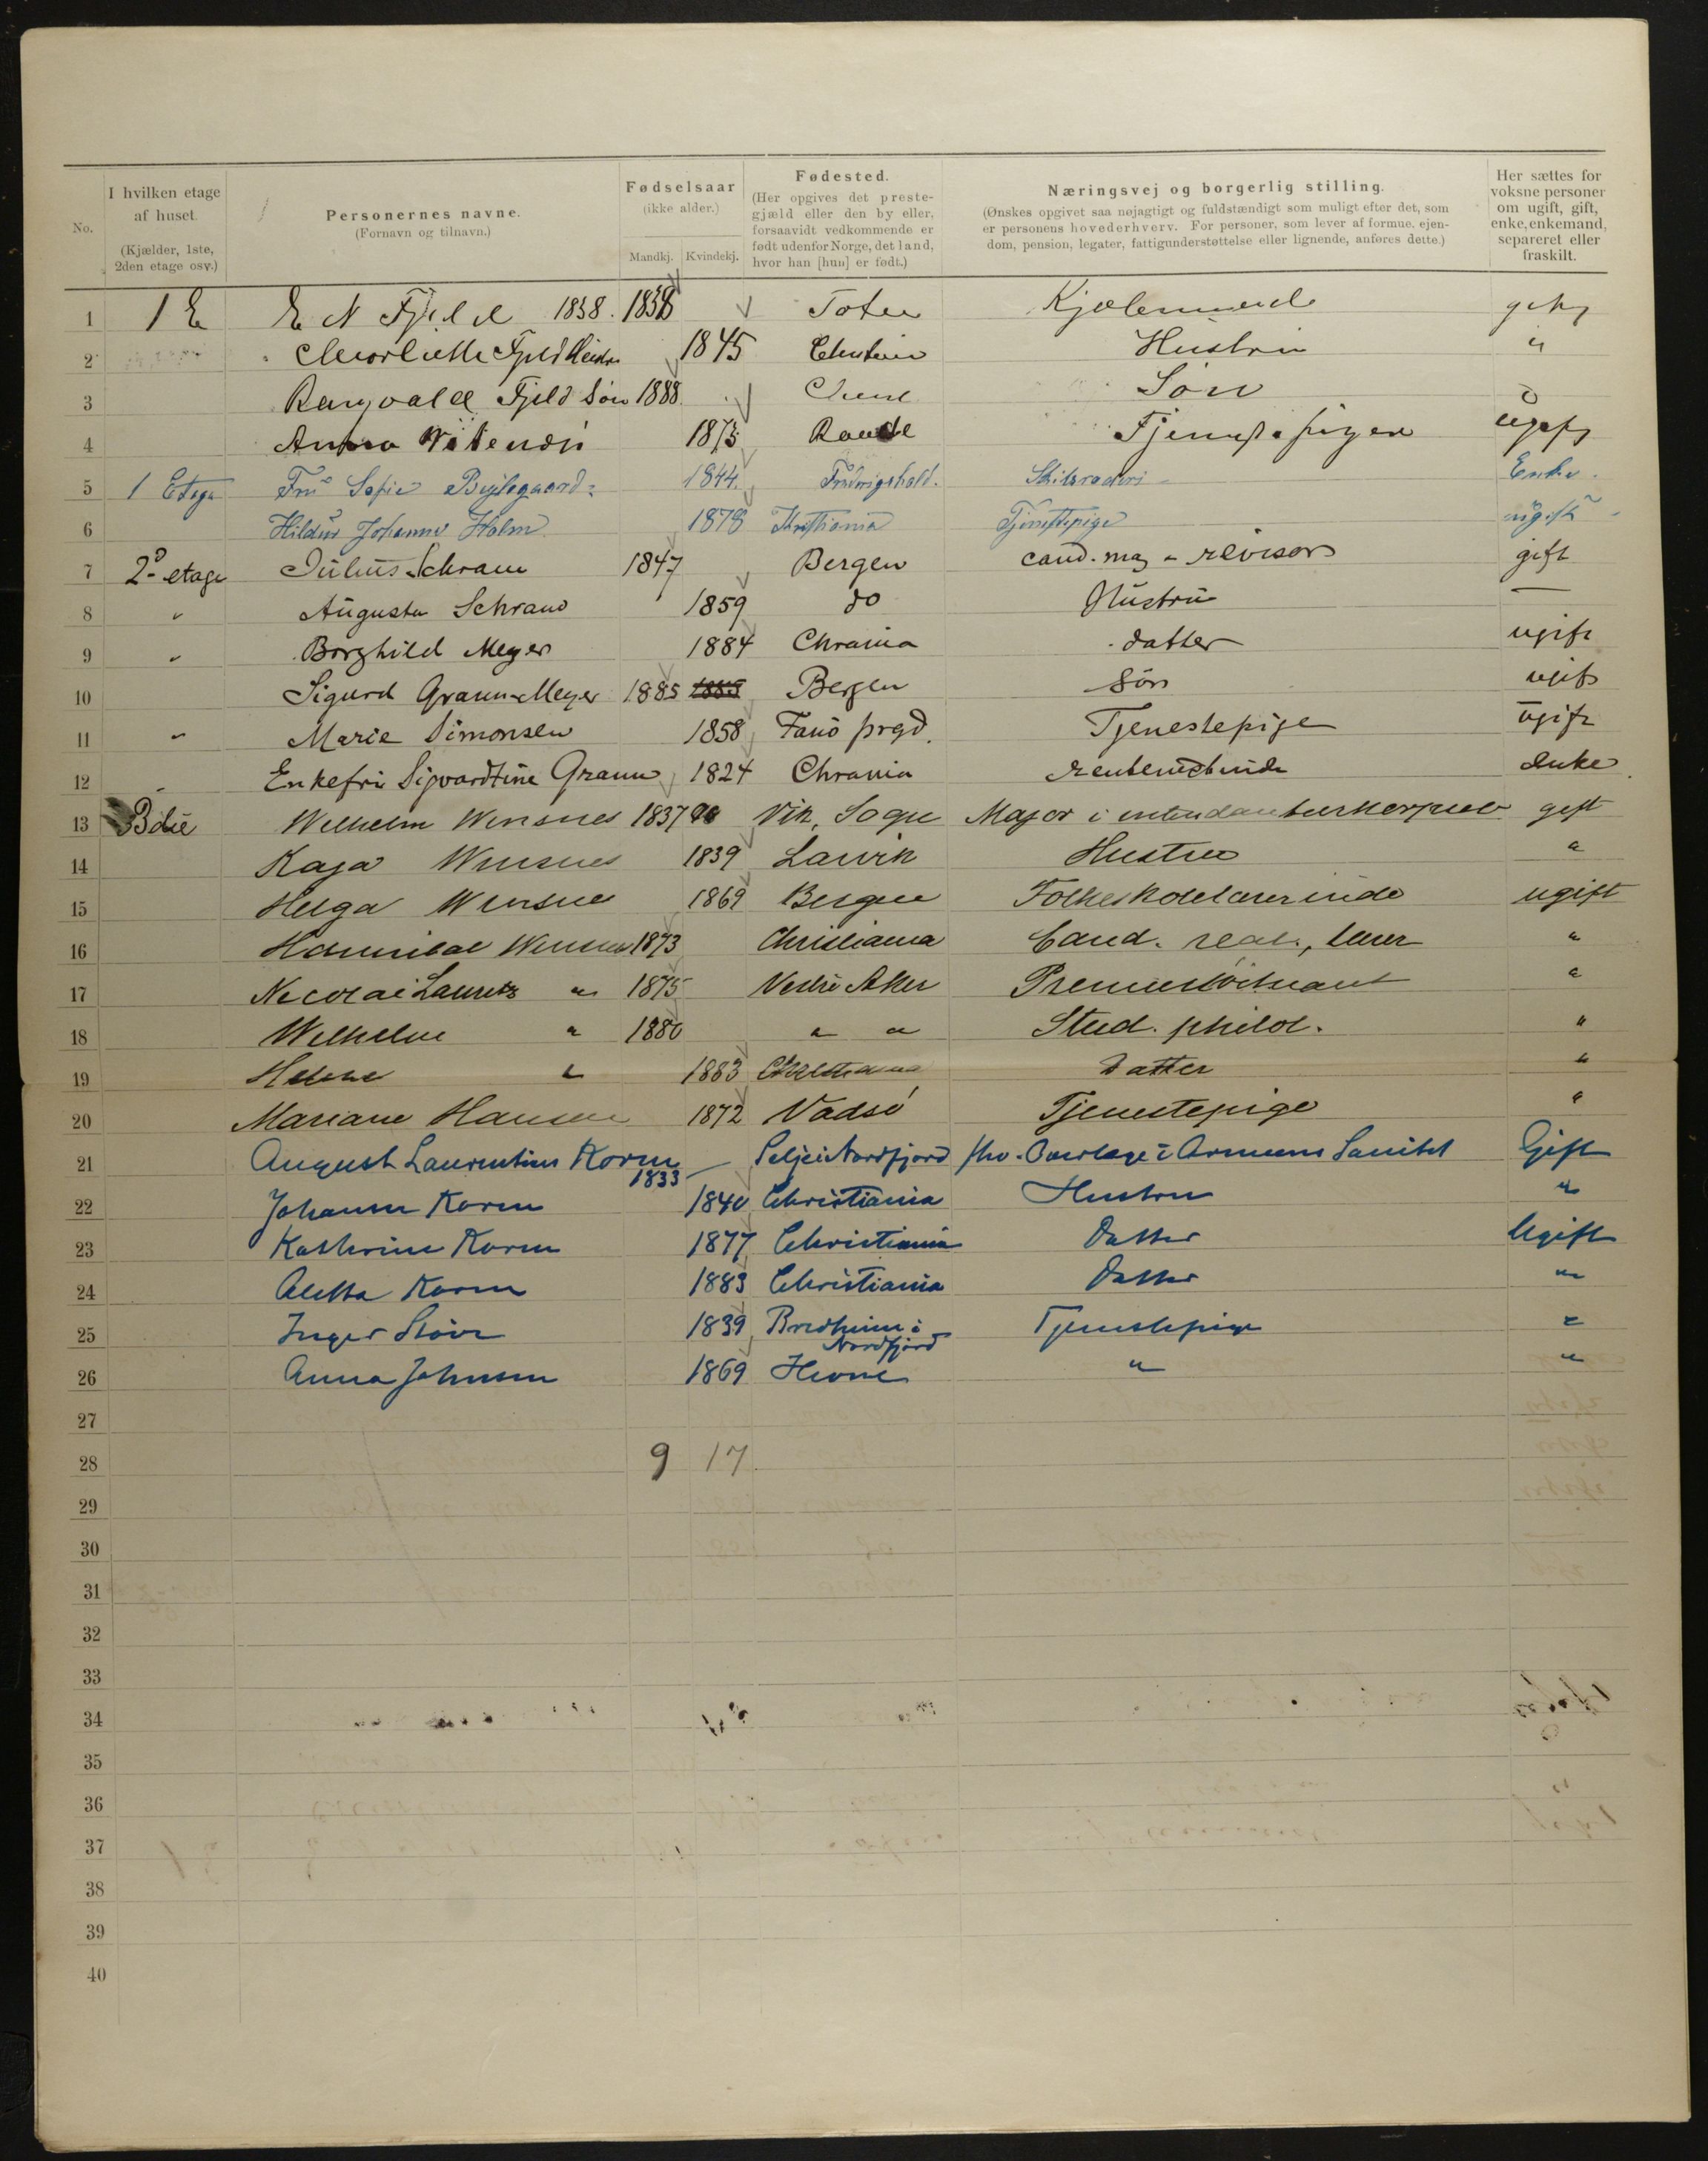 No.
I hvilken etage
af huset.
(Kjælder, 1ste,
2den etage osv.)
Personernes navne.
(Fornavn og tilnavn.)
Fødselsaar
(ikke alder.)
Mandkj. Kvindekj.
Fødested.
(Her opgives det preste-
gjæld eller den by eller,
forsaavidt vedkommende er
født udenfor Norge, det land,
hvor han [hun] er født.)
Næringsvej og borgerlig stilling.
(Ønskes opgivet saa nøjagtigt og fuldstændigt som muligt efter det, som
er personens hovederhverv. For personer, som lever af formue, ejen-
dom, pension, legater, fattigunderstøttelse eller lignende, anføres dette.)
Her sættes for
voksne personer
om ugift, gift,
enke, enkemand,
separeret eller
fraskilt.
1 1 E E N Fjeld 1838. 1838 Toten
2 Fjeld 1845 Hustru "
3 Fjeld Søn 1888 Søn
4 Anna 1873
5 1 Etage Fru Sofie 1844 Fredrigshald. Enke
6 Hildur Johanne Holm 1878 Kristiania Tjenestepige ugift
7 2den etage Julius Schram 1847 Bergen cand. mag - revisor gift
8 " Augusta Schram 1859 do Hustru —
9 " Borghild Meyer 1884 Chrania datter ugift
10 Sigurd Grann-Meyer 1885 1885 Bergen søn ugift
11 " Marie Simonsen 1858 Fanø prgd. Tjenestepige ugift
12 " Enkefru Sigvardtine Grann 1824 Chrania enke
13 Wilhelm Winsnes 1837 Vik, Sogn Major i gift
14 Kaja Winsnes 1839 Larvik Hustru "
15 Helga Winsnes 1869 Bergen Folkeskolelærerinde ugift
16 Hannibal Winsnes 1873 Christiania Cand. real., lærer "
17 Nicolai Lauritz " 1875 Vestre Aker Premierløitnant "
18 Wilhelm " 1880 " " Stud. philol. "
19 " 1883 Christiania Datter "
20 Mariane Hansen 1872 Vadsö Tjenestepige "
21 August Laurentius Koren 1833 Selje i Nordfjord Gift
22 Johanne Koren 1840 Christiania Hustru "
23 Kathrine Koren 1877 Christiania Datter Ugift
24 Aletta Koren 1883 Christiania Datter "
25 Inger 1839 Bredheim i Nordfjord Tjenestepige "
26 Anna Johnsen 1869 Hevne " "
27
28 9 17
29
30
31
32
33
34
35
36
37
38
39
40